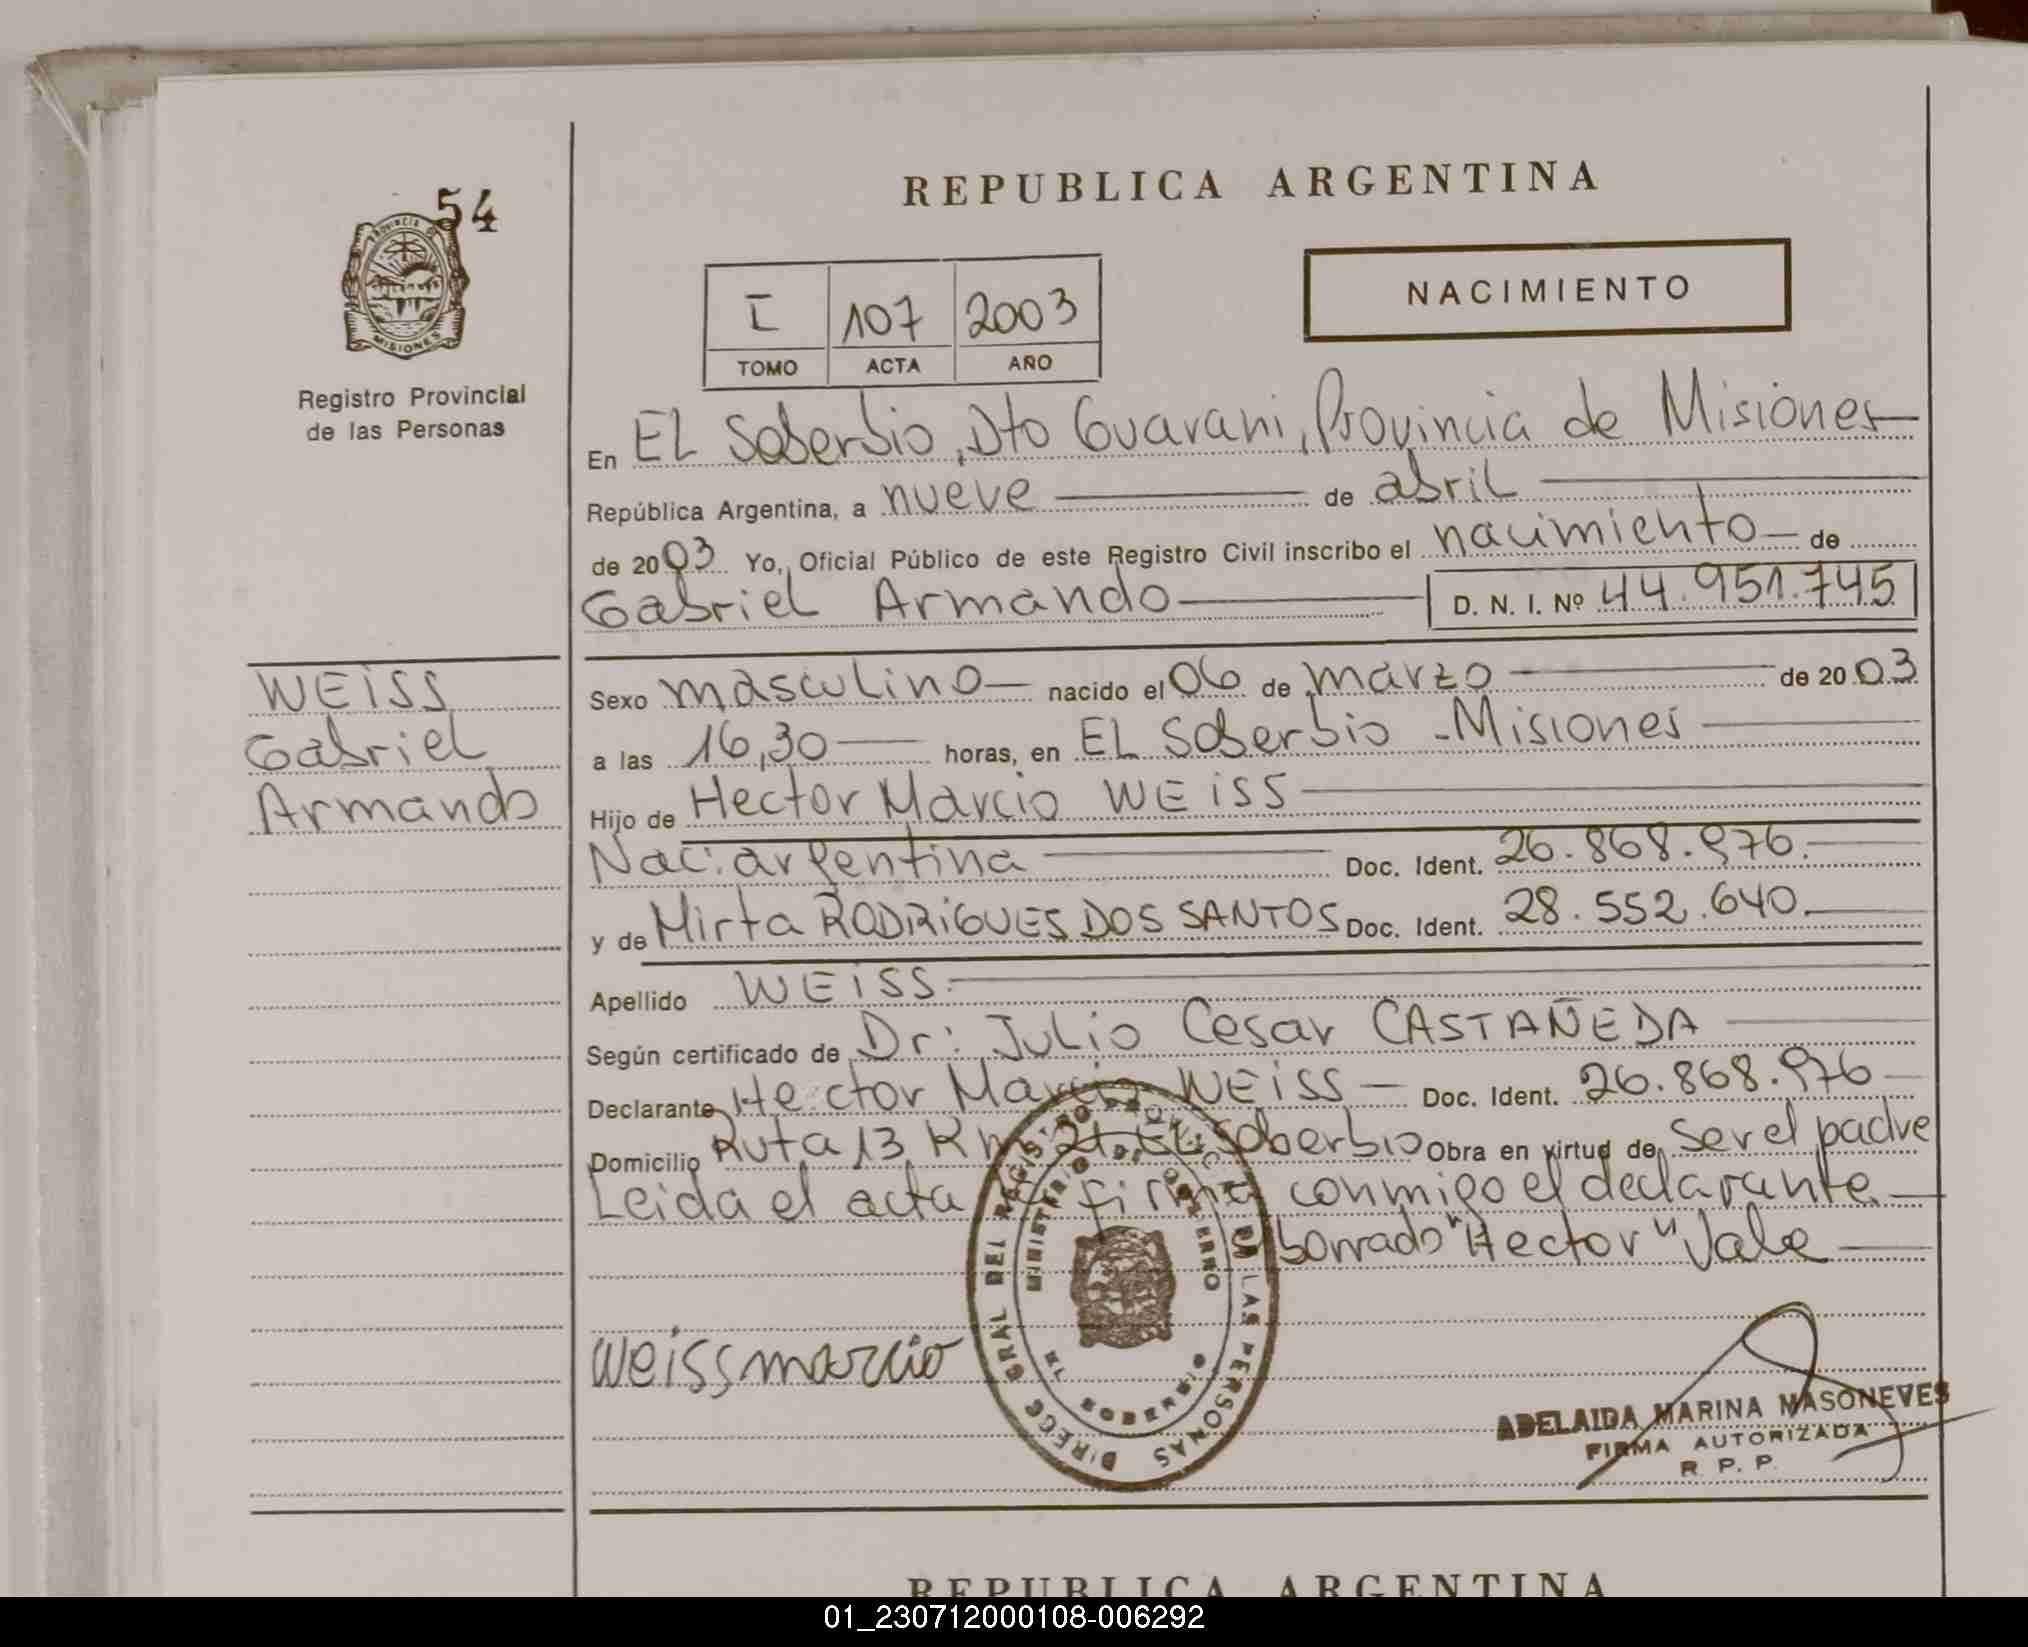 54
PROVINCIA DE
MISIONES
Registro Provincial
de las Personas
REPUBLICA ARGENTINA
I 107 2003
TOMO ACTA AÑO
NACIMIENTO
En EL Soberbio, Dto Guarani, Provincia de Misiones
República Argentina, a nueve de abril
de 2003 Yo, Oficial Público de este Registro Civil inscribo el nacimiento de
Gabriel Armando D. N. I. Nº 44.951.745
WEISS
Gabriel
Armando
Sexo masculino nacido el 06 de marzo de 2003
a las 16,30 horas, en EL Soberbio - Misiones
Hijo de Hector Marcio WEISS
Nac: argentina Doc. Ident. 26.868.976.
y de Mirta RODRIGUES DOS SANTOS Doc. Ident. 28.552.640.
Apellido WEISS.
Según certificado de Dr: Julio Cesar CASTAÑEDA
Declarante Hector Marcio WEISS Doc. Ident. 26.868.976
Domicilio Ruta 13 Km 21, EL Soberbio Obra en virtud de ser el padre
Leida el acta firma conmigo el declarante.
borrado "Hector" Vale
DIRECC GRAL DEL REGISTRO DE LAS PERSONAS
MINISTERIO DE GOBIERNO
weiss marcio
ADELAIDA MARINA MASONEVES
FIRMA AUTORIZADA
R. P. P.
REPUBLICA ARGENTINA
01_230712000108-006292